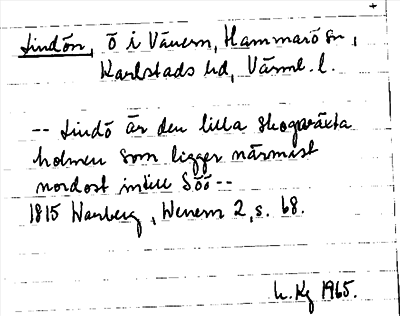 Lindön, ö i Vänern, Hammarö sn,
Karlstads hd, Värml. l.
-- Lindö är den lilla skogväxta
holmen som ligger närmast
nordost intill Söö --
1815 Warberg, Wenern 2, s. 68.
1965.